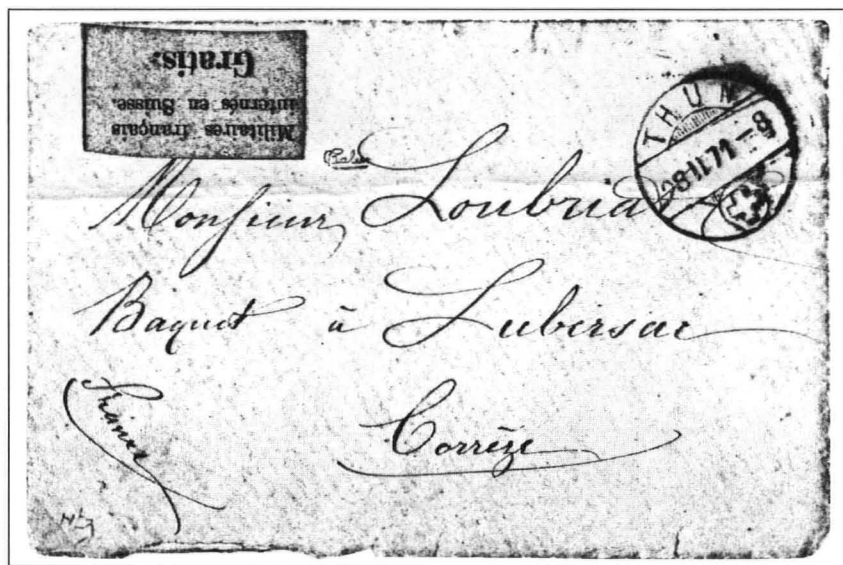 Militaires français
internés en Suisse.
Gratis.
THUN
28 II 71 - 8
Monsieur
Baquet à Lubersac
Corrèze
France